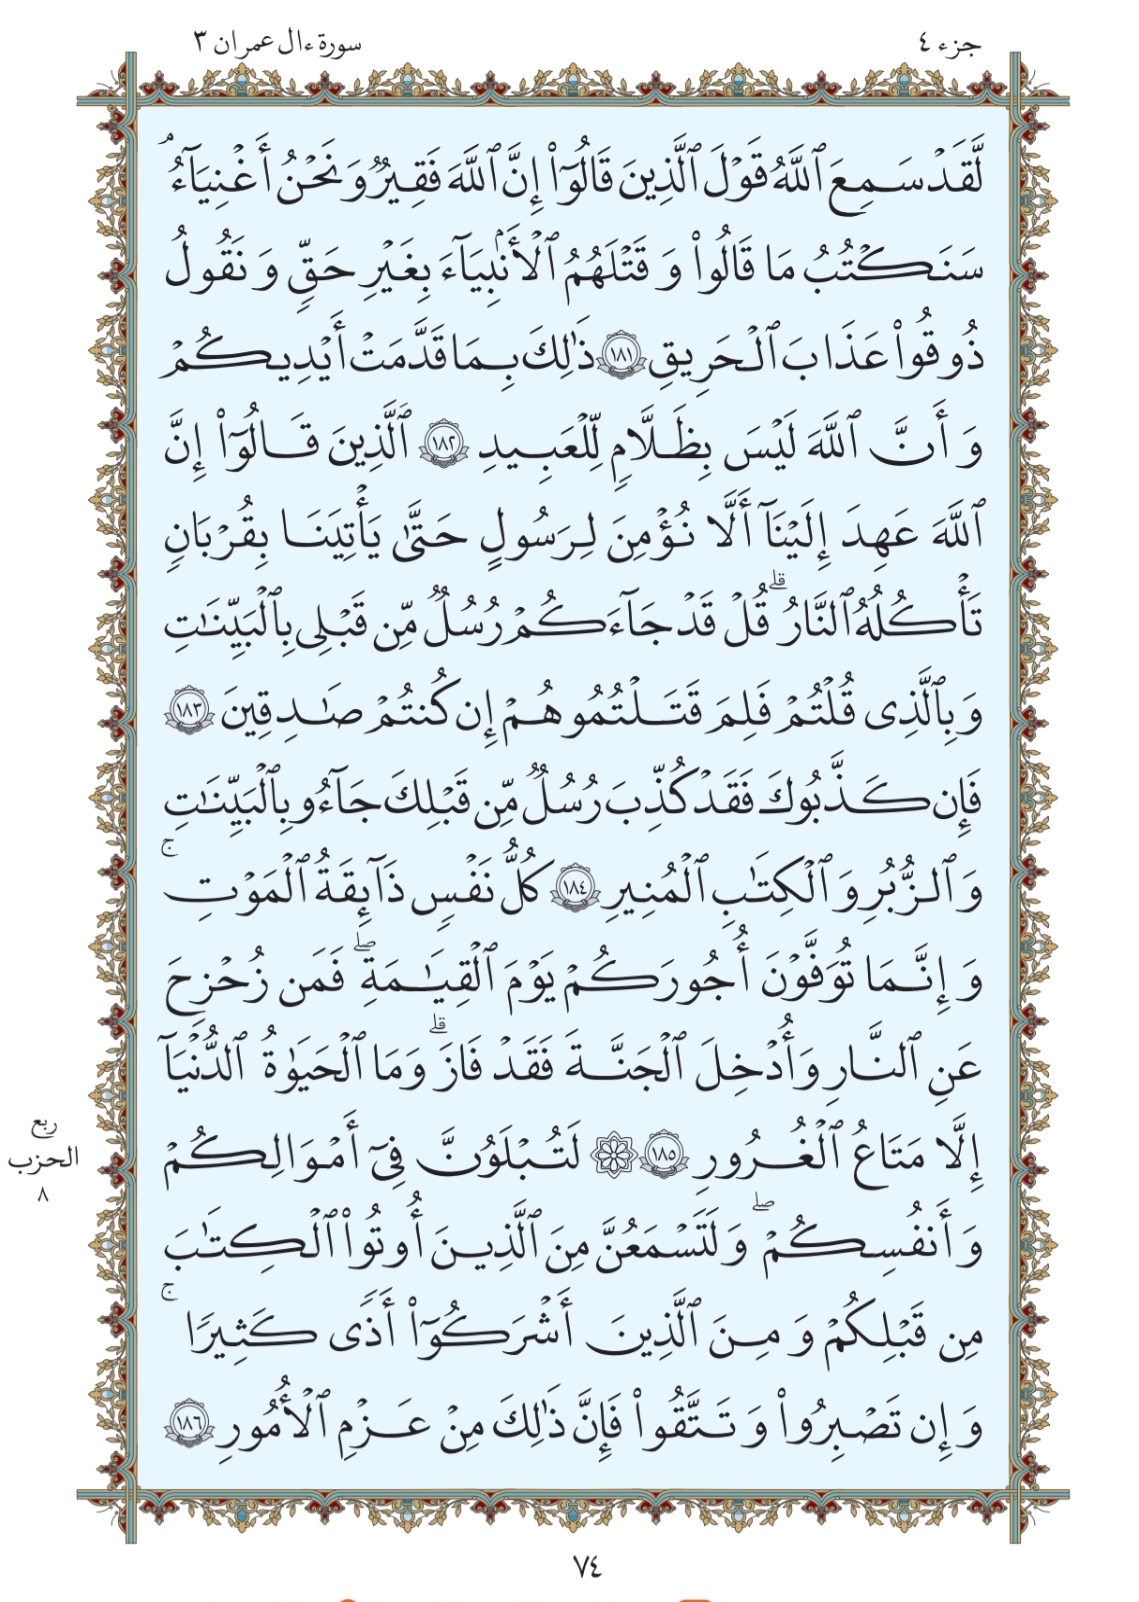 جزء ٤
سورة ءال عمران ٣
لَّقَدْ سَمِعَ ٱللَّهُ قَوْلَ ٱلَّذِينَ قَالُوٓا۟ إِنَّ ٱللَّهَ فَقِيرٌ وَنَحْنُ أَغْنِيَآءُ ۘ
سَنَكْتُبُ مَا قَالُوا۟ وَقَتْلَهُمُ ٱلْأَنۢبِيَآءَ بِغَيْرِ حَقٍّ وَنَقُولُ
ذُوقُوا۟ عَذَابَ ٱلْحَرِيقِ ١٨١ ذَٰلِكَ بِمَا قَدَّمَتْ أَيْدِيكُمْ
وَأَنَّ ٱللَّهَ لَيْسَ بِظَلَّامٍ لِّلْعَبِيدِ ١٨٢ ٱلَّذِينَ قَالُوٓا۟ إِنَّ
ٱللَّهَ عَهِدَ إِلَيْنَآ أَلَّا نُؤْمِنَ لِرَسُولٍ حَتَّىٰ يَأْتِيَنَا بِقُرْبَانٍ
تَأْكُلُهُ ٱلنَّارُ ۗ قُلْ قَدْ جَآءَكُمْ رُسُلٌ مِّن قَبْلِى بِٱلْبَيِّنَٰتِ
وَبِٱلَّذِى قُلْتُمْ فَلِمَ قَتَلْتُمُوهُمْ إِن كُنتُمْ صَٰدِقِينَ ١٨٣
فَإِن كَذَّبُوكَ فَقَدْ كُذِّبَ رُسُلٌ مِّن قَبْلِكَ جَآءُو بِٱلْبَيِّنَٰتِ
وَٱلزُّبُرِ وَٱلْكِتَٰبِ ٱلْمُنِيرِ ١٨٤ كُلُّ نَفْسٍ ذَآئِقَةُ ٱلْمَوْتِ ۚ
وَإِنَّمَا تُوَفَّوْنَ أُجُورَكُمْ يَوْمَ ٱلْقِيَٰمَةِ ۖ فَمَن زُحْزِحَ
عَنِ ٱلنَّارِ وَأُدْخِلَ ٱلْجَنَّةَ فَقَدْ فَازَ ۗ وَمَا ٱلْحَيَوٰةُ ٱلدُّنْيَآ
إِلَّا مَتَاعُ ٱلْغُرُورِ ١٨٥ ۞ لَتُبْلَوُنَّ فِىٓ أَمْوَالِكُمْ
وَأَنفُسِكُمْ ۖ وَلَتَسْمَعُنَّ مِنَ ٱلَّذِينَ أُوتُوا۟ ٱلْكِتَٰبَ
مِن قَبْلِكُمْ وَمِنَ ٱلَّذِينَ أَشْرَكُوٓا۟ أَذًى كَثِيرًا ۚ
وَإِن تَصْبِرُوا۟ وَتَتَّقُوا۟ فَإِنَّ ذَٰلِكَ مِنْ عَزْمِ ٱلْأُمُورِ ١٨٦
ربع
الحزب
٨
٧٤